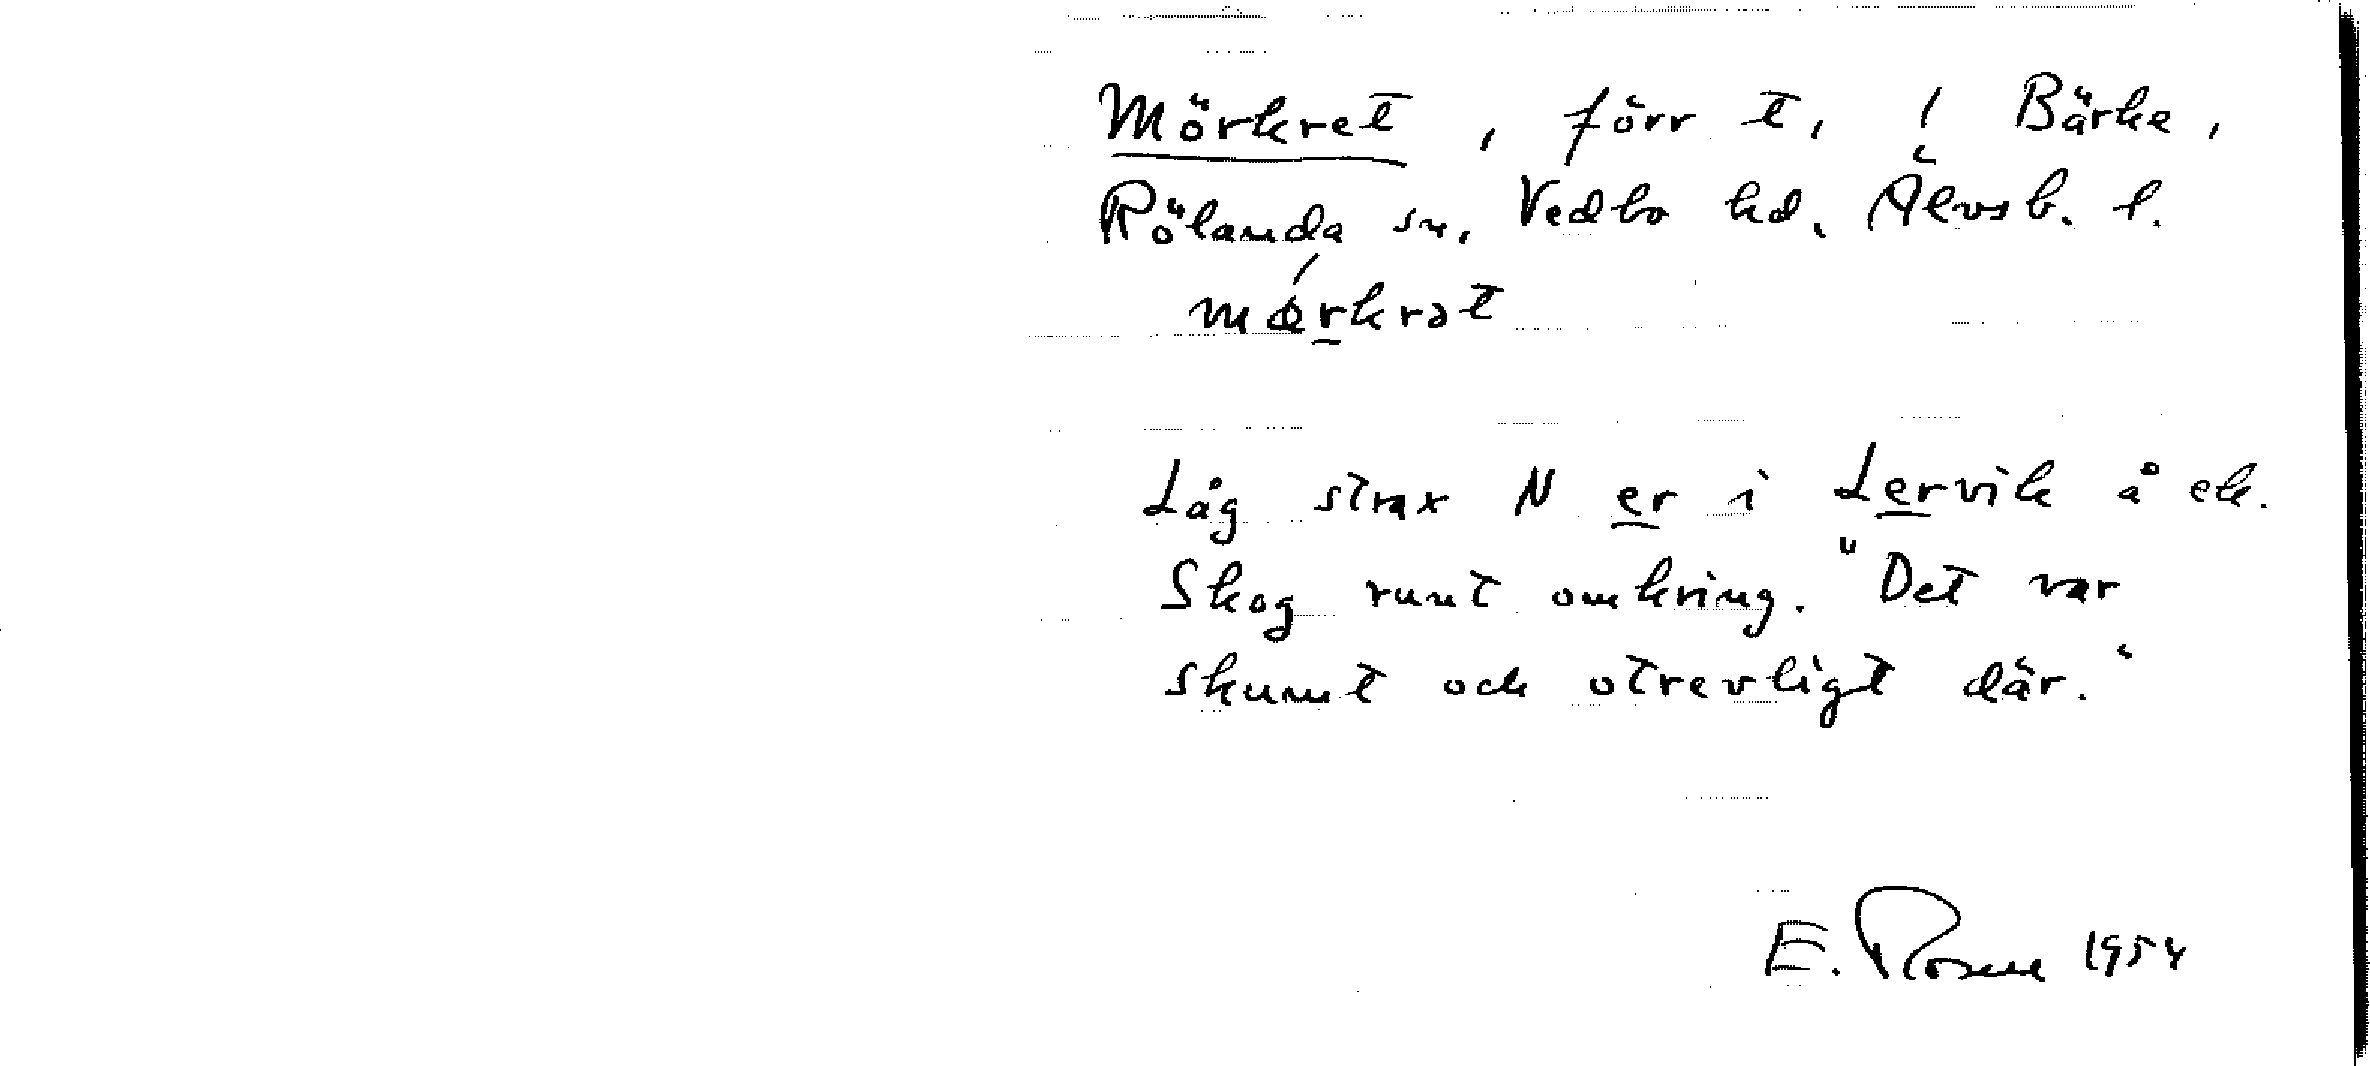 Mörkret, förr t, / Bärke,
Rölanda sn, Vedbo hd, Älvsb. l.
mǿrkrət
Låg strax N er i Lervik å ek.
Skog runt omkring. "Det var
skumt och otrevligt där."
E. Rosell 1954